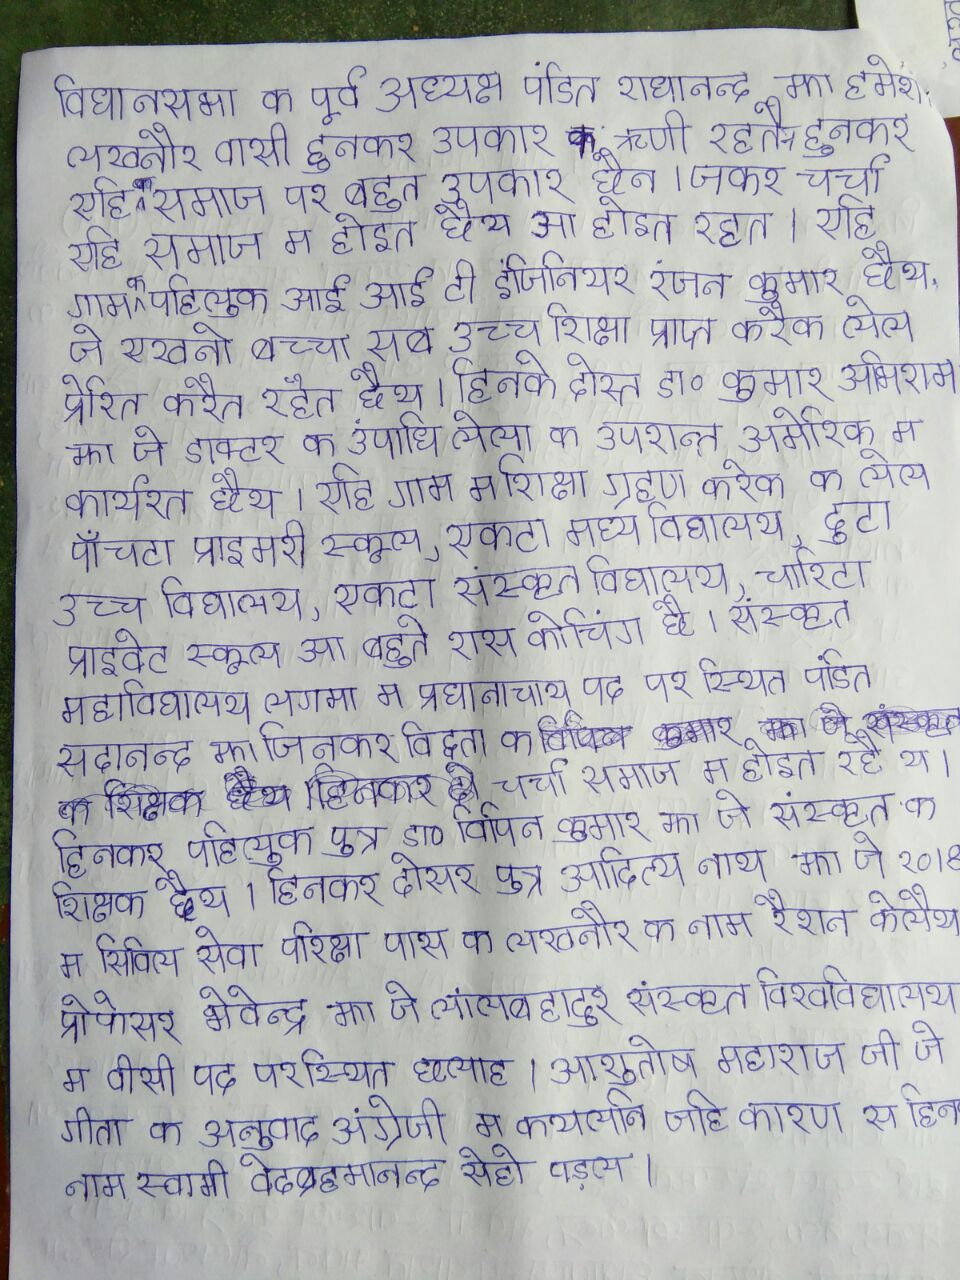 विधानसभा क पूर्व अध्यक्ष पंडित राधानन्द झा हमेशा
लखनौर वासी हुनकर उपकार क ऋणी रहतै। हुनकर
एहि समाज पर बहुत उपकार छैन। जकर चर्चा
एहि समाज म होइत छैथ आ होइत रहत। एहि
गाम के पहिलुक आई आई टी इंजिनियर रंजन कुमार छैथ,
जे एखनो बच्चा सब उच्च शिक्षा प्राप्त करैक लेल
प्रेरित करैत रहैत छैथ। हिनके दोस्त डा० कुमार अभिराम
झा जे डाक्टर क उपाधि लेला क उपरान्त अमेरिका म
कार्यरत छैथ। एहि गाम म शिक्षा ग्रहण करैक क लेल
पाँचटा प्राइमरी स्कूल, एकटा मध्य विद्यालय, दुटा
उच्च विद्यालय, एकटा संस्कृत विद्यालय, चारिटा
प्राइवेट स्कूल आ बहुते रास कोचिंग छै। संस्कृत
महाविद्यालय लगमा म प्रधानाचाय पद पर स्थित पंडित
सदानन्द झा जिनकर विद्वता क विपिन कुमार झा जे संस्कृत
क शिक्षक छैथ। हिनकर चर्चा समाज म होइत रहै थ।
हिनकर पहिलुक पुत्र डा० विपिन कुमार झा जे संस्कृत क
शिक्षक छैथ। हिनकर दोसर पुत्र आदित्य नाथ झा जे २०18
म सिविल सेवा परिक्षा पास क लखनौर क नाम रैशन केलैथ
प्रोफेसर झा जे लालबहादुर संस्कृत विश्वविद्यालय
म वीसी पद पर स्थित छलाह। आशुतोष महाराज जी जे
गीता क अनुवाद अंग्रेजी म कयलनि जहि कारण स हिन
नाम स्वामी वेदब्रहमानन्द सेहो पड़ल।